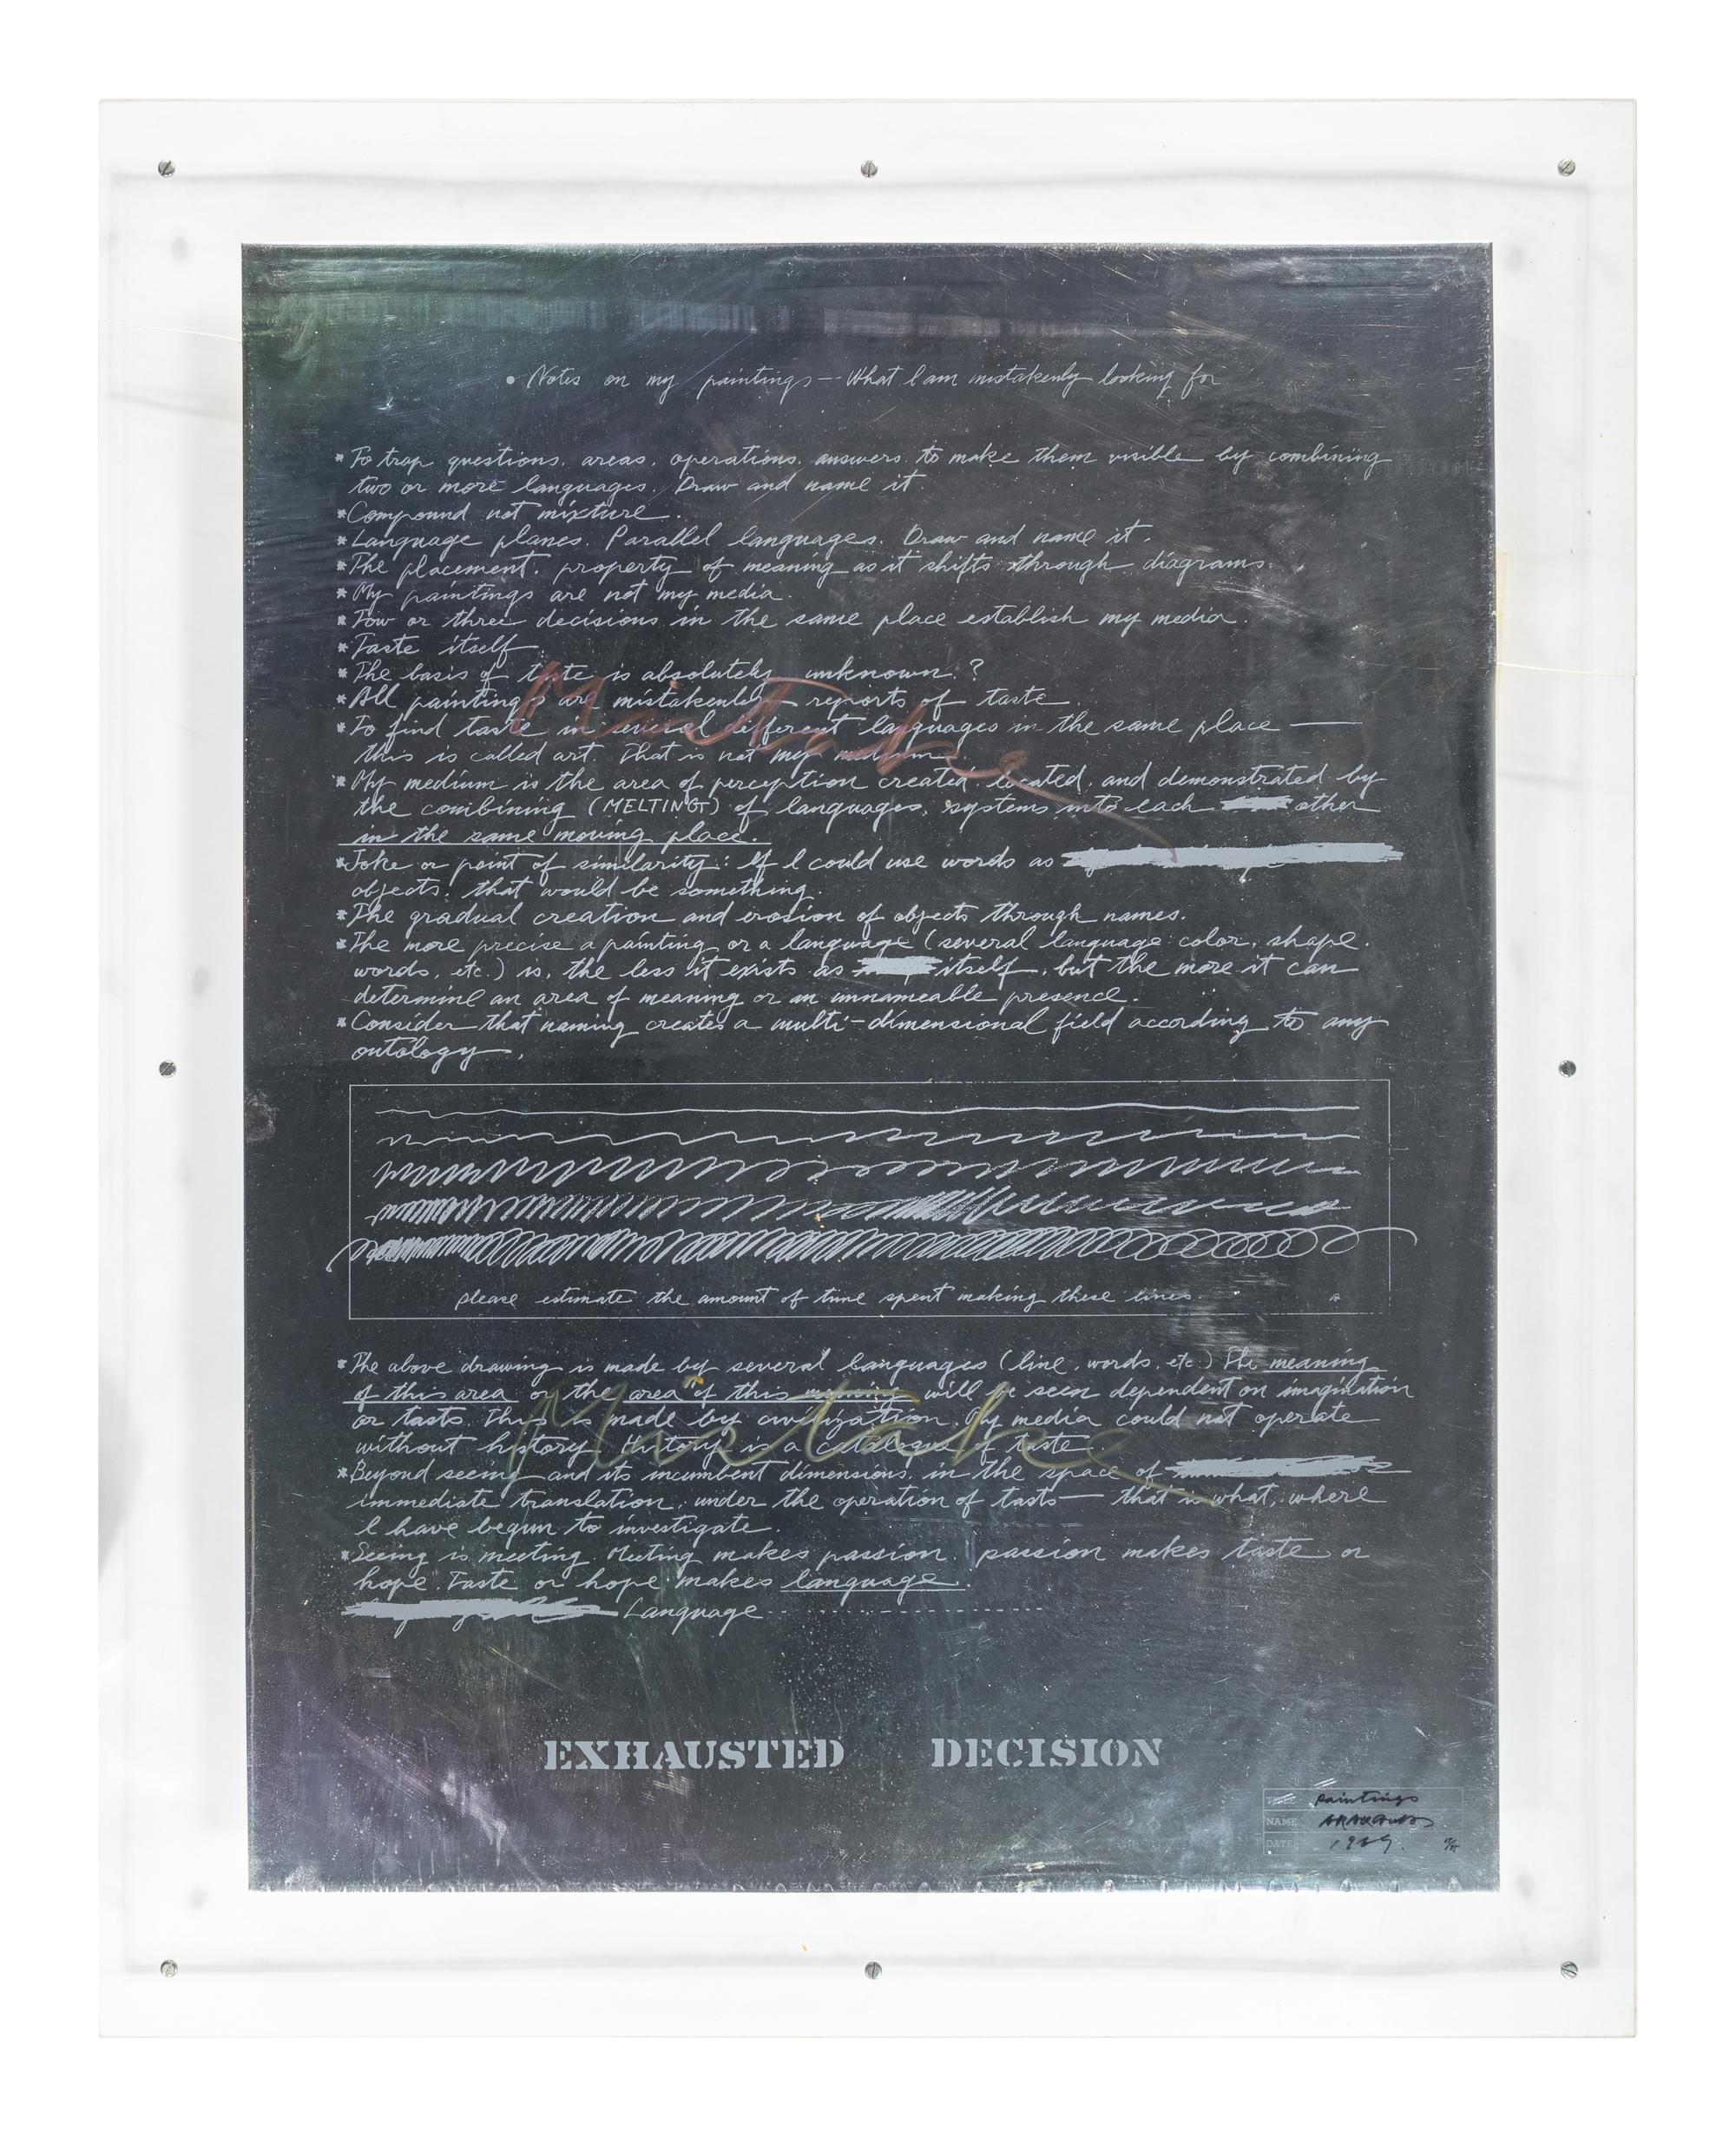 • Notes on my paintings -- What I am mistakenly looking for
* To trap questions, areas, operations, answers, to make them visible by combining
two or more languages. Draw and name it.
* Compound not mixture.
* Language planes. Parallel languages. Draw and name it.
* The placement, property of meaning as it shifts through diagrams.
* My paintings are not my media.
* Tow or three decisions in the same place establish my media.
* Taste itself.
* The basis of taste is absolutely unknown.?
* All paintings are mistakenly reports of taste.
* To find taste in several different languages in the same place —
this is called art. That is not my medium.
Mistake
* My medium is the area of perception created, located, and demonstrated by
the combining (MELTING) of languages, systems into each other
in the same moving place.
* Joke or point of similarity: If I could use words as
objects! that would be something.
* The gradual creation and erosion of objects through names.
* The more precise a painting or a language (several language: color, shape,
words, etc.) is, the less it exists as itself, but the more it can
determine an area of meaning or an unnameable presence.
* Consider that naming creates a multi-dimensional field according to any
ontology.
please estimate the amount of time spent making these lines.
* The above drawing is made by several languages (line, words, etc.) The meaning
of this area or the area of this meaning will be seen dependent on imagination
or taste. This is made by civilization. My media could not operate
without history. History is a catalogue of taste.
Mistake
* Beyond seeing and its incumbent dimensions, in the space of
immediate translation, under the operation of taste — that is what, where
I have begun to investigate.
* Seeing is meeting. Meeting makes passion. passion makes taste or
hope. Taste or hope makes language.
Language - - - - - - - - - - - - - - -
EXHAUSTED DECISION
paintings
NAME ARAKAWA
DATE 1969.